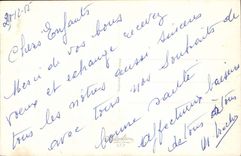 Chers Enfants
Merci de vos bons
voeux et échange recevez
tous les nôtres aussi sincères
avec tous nos souhaits de
bonne santé.
affectueux baisers
de tous à tous